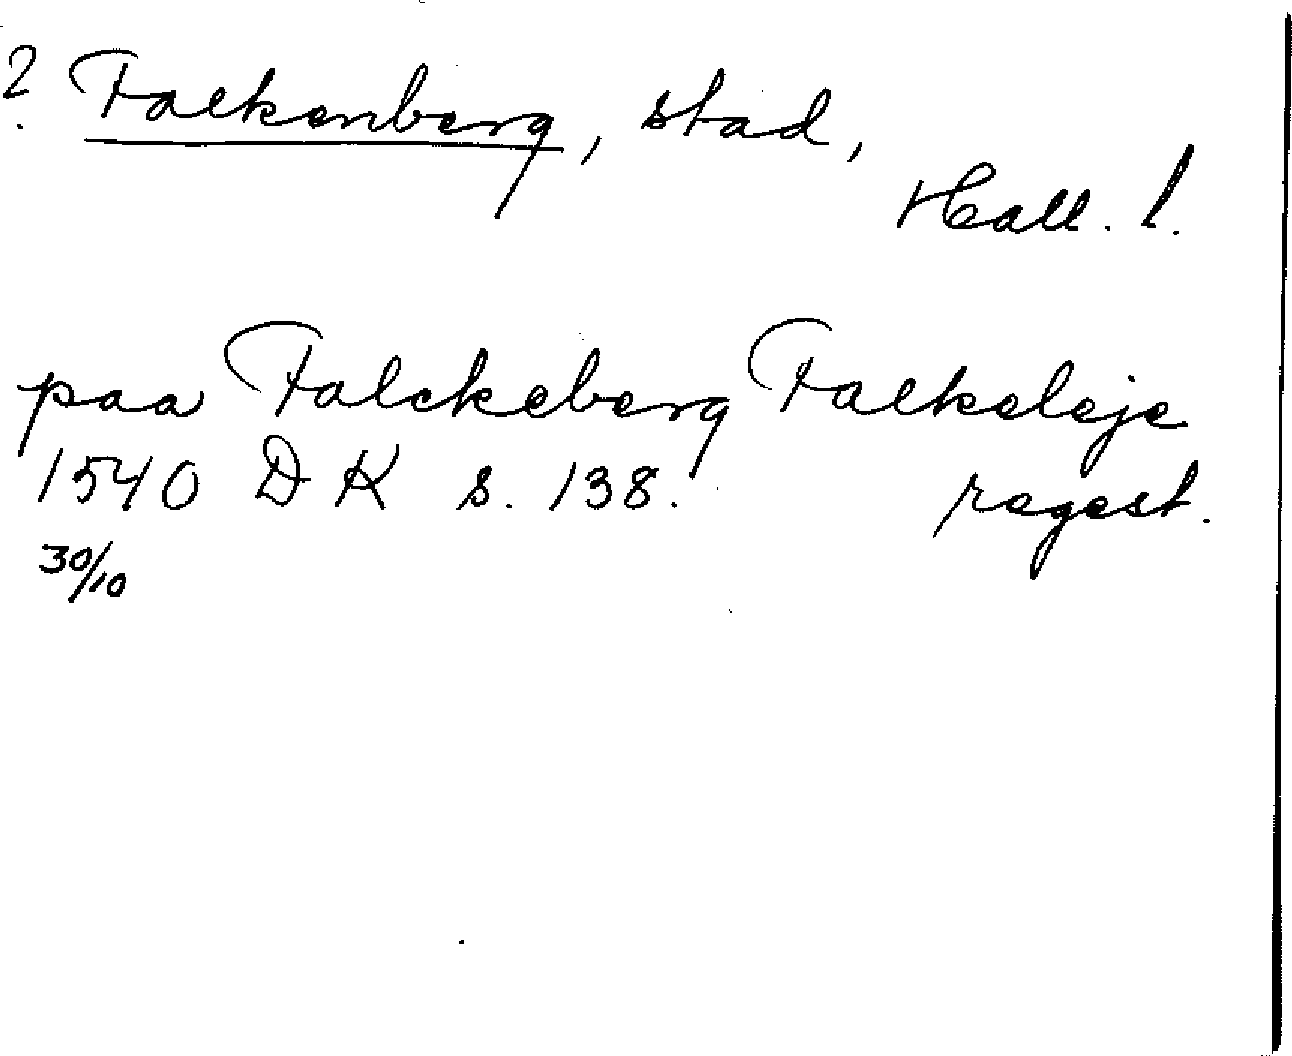 ? Falkenberg, stad,
Hall. l.
paa Falckeberg Falkeleje
1540 DK s. 138. regest.
30/10